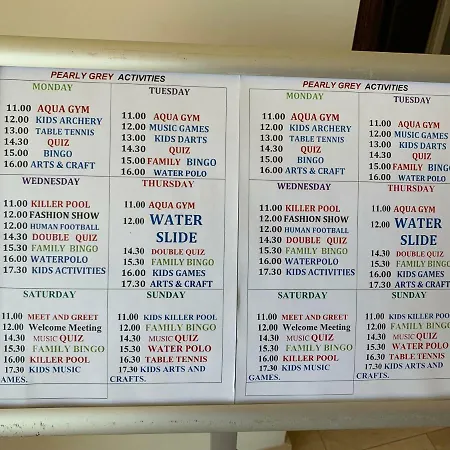 PEARLY GREY ACTIVITIES
MONDAY
11.00 AQUA GYM
12.00 KIDS ARCHERY
13.00 TABLE TENNIS
14.30 QUIZ
15.00 BINGO
16.00 ARTS & CRAFT
TUESDAY
11.00 AQUA GYM
12.00 MUSIC GAMES
13.00 KIDS DARTS
14.30 QUIZ
15.00 FAMILY BINGO
16.00 WATER POLO
WEDNESDAY
11.00 KILLER POOL
12.00 FASHION SHOW
12.00 HUMAN FOOTBALL
14.30 DOUBLE QUIZ
15.30 FAMILY BINGO
16.00 WATERPOLO
17.30 KIDS ACTIVITIES
THURSDAY
11.00 AQUA GYM
12.00 WATER
SLIDE
14.30 DOUBLE QUIZ
15.30 FAMILY BINGO
16.00 KIDS GAMES
17.30 ARTS & CRAFT
SATURDAY
11.00 MEET AND GREET
12.00 Welcome Meeting
14.30 MUSIC QUIZ
15.30 FAMILY BINGO
16.00 KILLER POOL
17.30 KIDS MUSIC
GAMES.
SUNDAY
11.00 KIDS KILLER POOL
12.00 FAMILY BINGO
14.30 MUSIC QUIZ
15.30 WATER POLO
16.30 TABLE TENNIS
17.30 KIDS ARTS AND
CRAFTS.
PEARLY GREY ACTIVITIES
MONDAY
11.00 AQUA GYM
12.00 KIDS ARCHERY
13.00 TABLE TENNIS
14.30 QUIZ
15.00 BINGO
16.00 ARTS & CRAFT
TUESDAY
11.00 AQUA GYM
12.00 MUSIC GAMES
13.00 KIDS DARTS
14.30 QUIZ
15.00 FAMILY BINGO
16.00 WATER POLO
WEDNESDAY
11.00 KILLER POOL
12.00 FASHION SHOW
12.00 HUMAN FOOTBALL
14.30 DOUBLE QUIZ
15.30 FAMILY BINGO
16.00 WATERPOLO
17.30 KIDS ACTIVITIES
THURSDAY
11.00 AQUA GYM
12.00 WATER
SLIDE
14.30 DOUBLE QUIZ
15.30 FAMILY BINGO
16.00 KIDS GAMES
17.30 ARTS & CRAFT
SATURDAY
11.00 MEET AND GREET
12.00 Welcome Meeting
14.30 MUSIC QUIZ
15.30 FAMILY BINGO
16.00 KILLER POOL
17.30 KIDS MUSIC
GAMES.
SUNDAY
11.00 KIDS KILLER POOL
12.00 FAMILY BINGO
14.30 MUSIC QUIZ
15.30 WATER POLO
16.30 TABLE TENNIS
17.30 KIDS ARTS AND
CRAFTS.